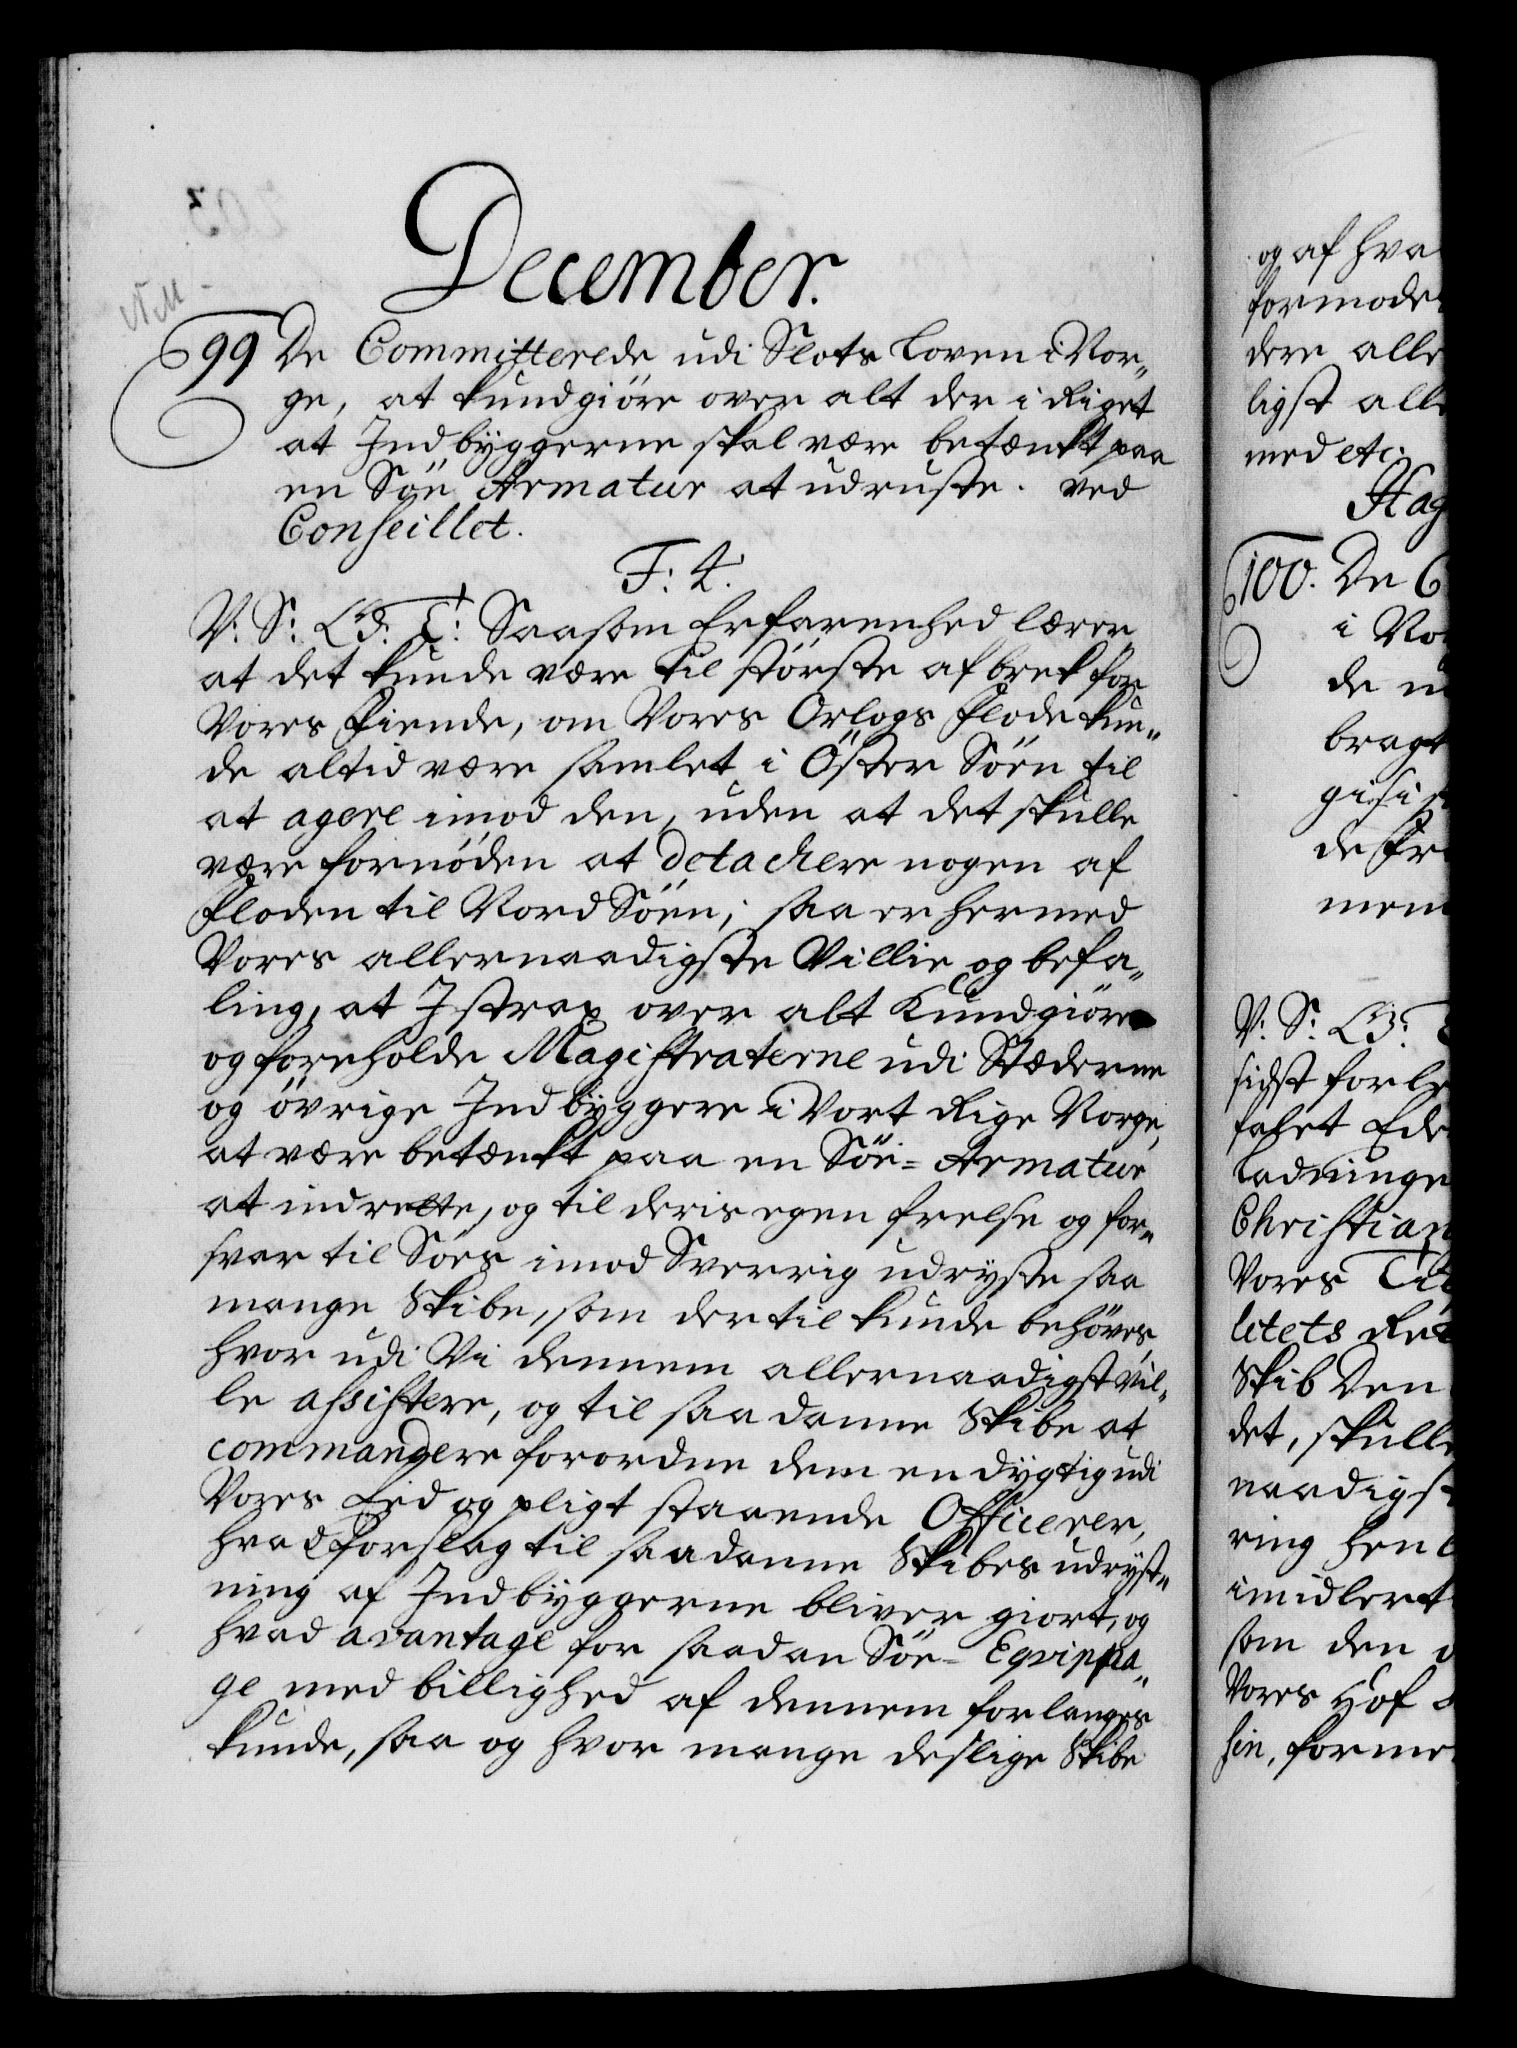 December.
NM
99 De Committerede udi Slots Loven i Nor„
ge, at kundgiöre over alt der i Riget
at Indbyggerne skal være betænkt paa
en Söe Armatur at udruste. ved
Conseillet.
F: 4.
V: S: G: T: Saasom Erfarenhed lærer,
at det kunde være til störste afbrek for
Vores Fiende, om Vores Orlogs Flode kun„
de altid være samlet i Öster Söen til
at agere imod den, uden at det skulle
være fornöden at detachere nogen af
Floden til Nord Söen; saa er hermed
Vores allernaadigste Villie og befa„
ling, at I strax over alt Kundgiöre
og foreholde Magistraterne udi Stæderne
og övrige Indbyggere i Vort Rige Norge,
at være betænkt paa en Söe-Armatur
at indrette, og til deris egen frelse og for„
svar til Söes imod Sverrig udryste saa
mange Skibe, som dertil kunde behöves,
hvor udi Vi dennem allernaadigst vil„
le assistere, og til saadanne Skibe at
commandere forordne dem en dygtig udi
Vores Eed og pligt staaende Officerer,
hvad forslag til saadanne Skibes udryst„
ning af Indbyggerne bliver giort, og
hvad avantage for saadan Söe-Eqvippa„
ge med billighed af dennem forlanges
kunde, saa og hvor mange deslige Skibe
og af hva
formode
dere alle
ligst alle
med etc.
Hag
100. De C
i No
de
bragt
de Fr
V: S: G:
sidst forle
falet Ede
Ladninge
Christian
Vores
letets Re
Skib Den
det, skulle
naadigst
ring hen
imidlert
som den
Vores Hof
sin, forme